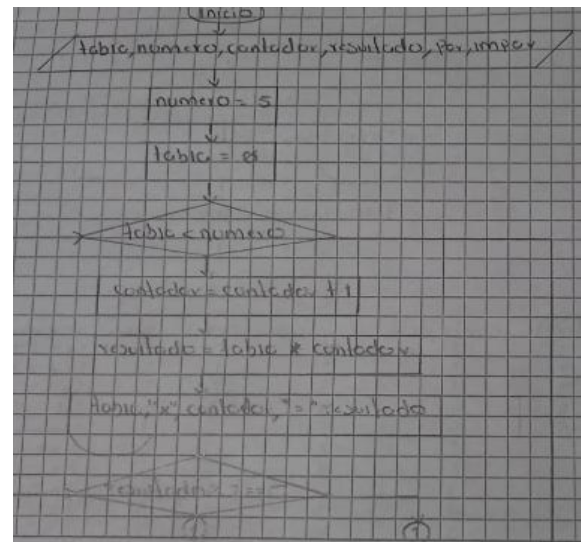 Inicio
tabla, numero, contador, resultado, par, impar
numero = 5
tabla = 0
tabla < numero
contador = contador + 1
resultado = tabla * contador
tabla, "x", contador, "=", resultado
1